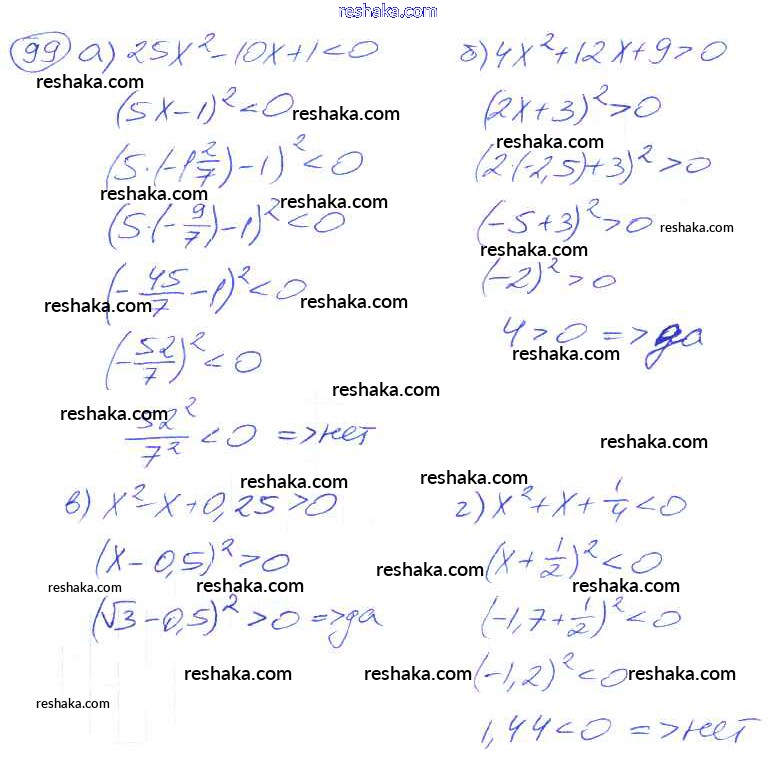 reshaka.com
99 а) 25x² - 10x + 1 < 0
reshaka.com
(5x - 1)² < 0 reshaka.com
(5·(-1 2/7) - 1)² < 0
reshaka.com reshaka.com
(5·(-9/7) - 1)² < 0
(-45/7 - 1)² < 0
reshaka.com reshaka.com
(-52/7)² < 0
reshaka.com
reshaka.com
52²/7² < 0 => нет
б) 4x² + 12x + 9 > 0
(2x + 3)² > 0
reshaka.com
(2(-2,5) + 3)² > 0
(-5 + 3)² > 0 reshaka.com
reshaka.com
(-2)² > 0
4 > 0 => да
reshaka.com
reshaka.com
reshaka.com
в) x² - x + 0,25 > 0
(x - 0,5)² > 0
reshaka.com reshaka.com
(√3 - 0,5)² > 0 => да
reshaka.com
reshaka.com
reshaka.com
г) x² + x + 1/4 < 0
reshaka.com (x + 1/2)² < 0
reshaka.com
(-1,7 + 1/2)² < 0
reshaka.com (-1,2)² < 0 reshaka.com
1,44 < 0 => нет